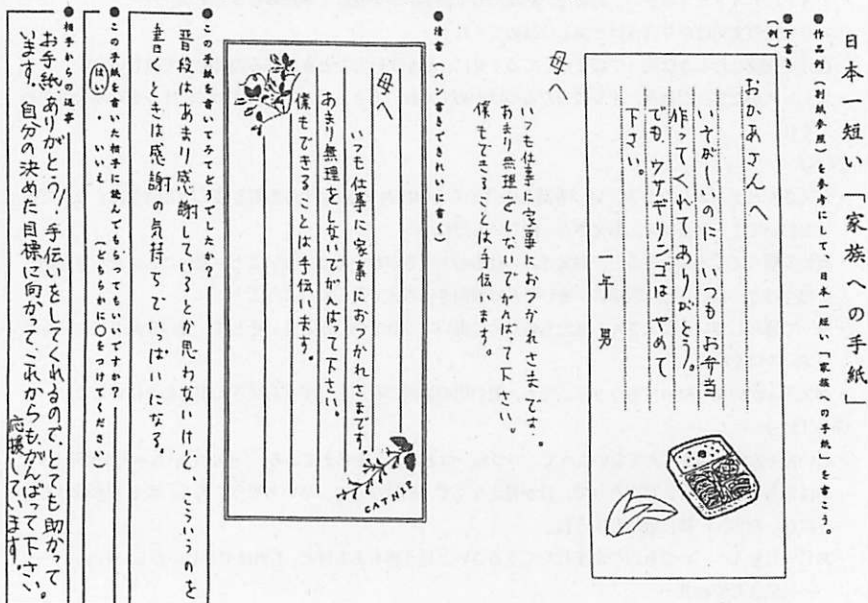 日本一短い「家族への手紙」
●作品例(別紙参照)を参考にして日本一短い「家族への手紙」を書こう。
●下書
〔例〕
おかあさんへ
いそがしいのに、いつもお弁当
作ってくれてありがとう。
でも、ウサギリンゴはやめて
下さい。
一年 男
母へ
いつも仕事に家事におつかれさまです。
あまり無理をしないでがんばって下さい。
僕もできることは手伝います。
●清書(下書きできれいに書く)
母へ
いつも仕事に家事におつかれさまです。
あまり無理をしないでがんばって下さい。
僕もできることは手伝います。
●この手紙を書いてみてどうでしたか?
普段はあまり感謝しているとか思わないけど、こういうのを
書くときは感謝の気持ちでいっぱいになる。
●この手紙を書いた相手に読んでもらってもいいですか?
はい ・ いいえ (どちらかに○をつけてください)
●相手からの返事
お手紙ありがとう! 手伝いをしてくれるので、とても助かって
います。自分の決めた目標に向かって、これからもがんばって下さい。
応援しています。